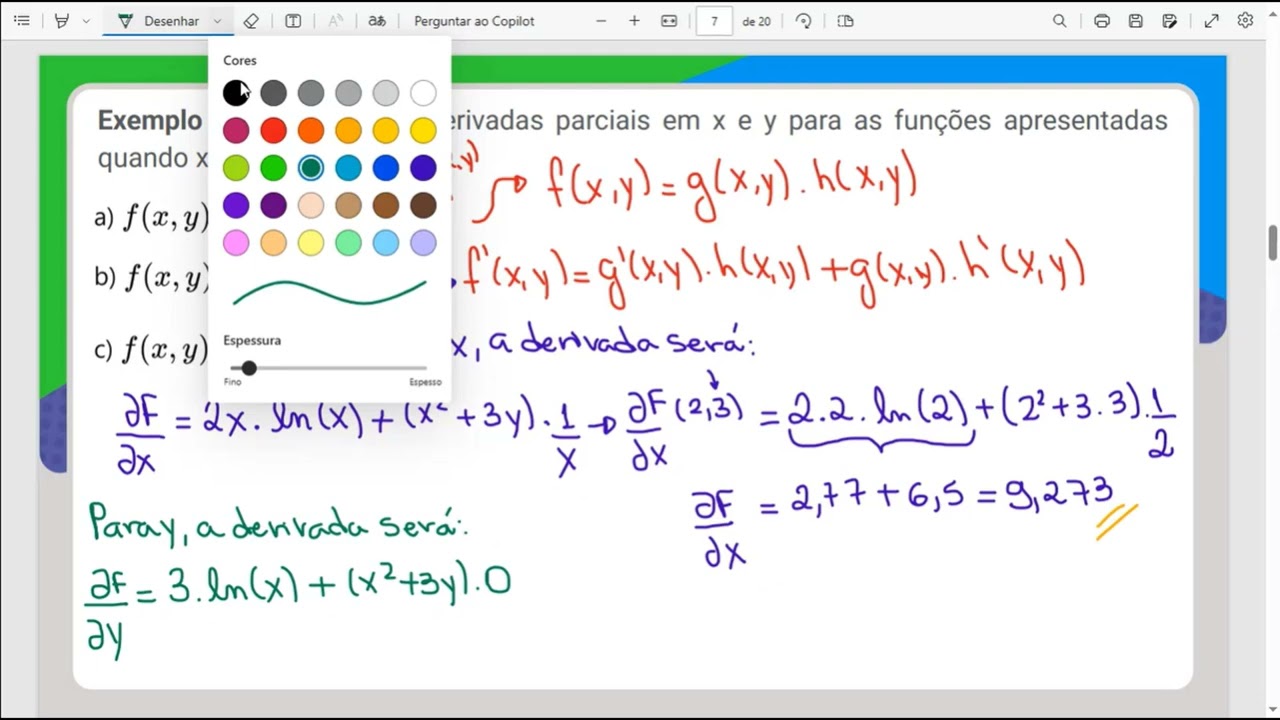 Desenhar
aあ
Perguntar ao Copilot
7 de 20
Cores
Espessura
Fino Espesso
Exemplo erivadas parciais em x e y para as funções apresentadas
quando x
,y)
f(x,y) = g(x,y) . h(x,y)
a) f(x, y)
b) f(x, y)
f'(x,y) = g'(x,y) . h(x,y) + g(x,y) . h'(x,y)
c) f(x, y)
x, a derivada será:
∂f/∂x = 2x . ln(x) + (x² + 3y) . 1/x → ∂f/∂x (2,3) = 2.2. ln(2) + (2² + 3.3) . 1/2
∂f/∂x = 2,77 + 6,5 = 9,273
Para y, a derivada será:
∂f/∂y = 3 . ln(x) + (x² + 3y) . 0